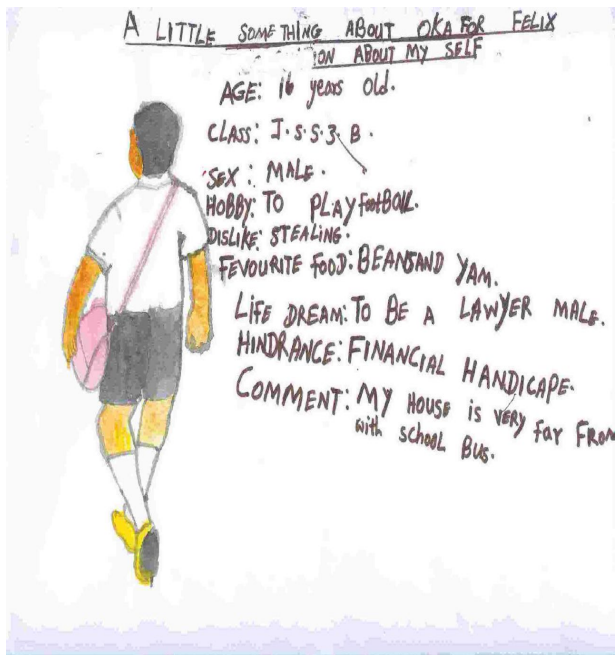 A LITTLE SOMETHING ABOUT OKAFOR FELIX
ON ABOUT MY SELF
AGE: 16 years old.
CLASS: J.S.S.3. B.
SEX: MALE.
HOBBY: TO PLAY FootBALL.
DISLIKE: STEALING.
FEVOURITE FOOD: BEANSAND YAM.
LIFE DREAM: TO BE A LAWYER MALE.
HINDRANCE: FINANCIAL HANDICAPE.
COMMENT: MY HOUSE is VERY far FROM
with SCHOOL BUS.